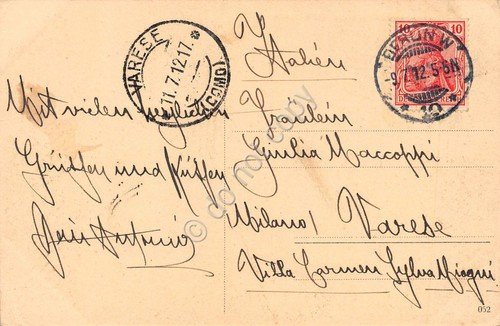 Mit vielen herzlichen
Grüssen und Küssen
Dein Antonio
Italien
Fräulein
Giulia Maccoppi
Milano / Varese
Villa Carmen Sylva
VARESE
(COMO)
11.7.12.17
BERLIN W
9.7.12.5-6N
* 10 *
10 10
do not copy
052